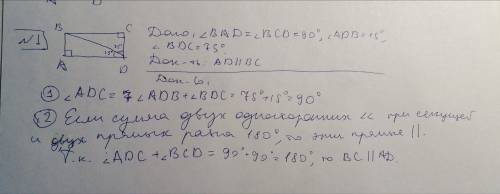 №1
B C
A D
75°
15°
Дано: ∠BAD=∠BCD=90°, ∠ADB=15°,
∠BDC=75°.
Док-ть: AD||BC
Док-во:
① ∠ADC = ∠ADB+∠BDC=75°+15°=90°
② Если сумма двух односторонних ∠∠ при секущей
и двух прямых равна 180°, то эти прямые ||.
Т.к. ∠ADC+∠BCD=90°+90°=180°, то BC||AD.